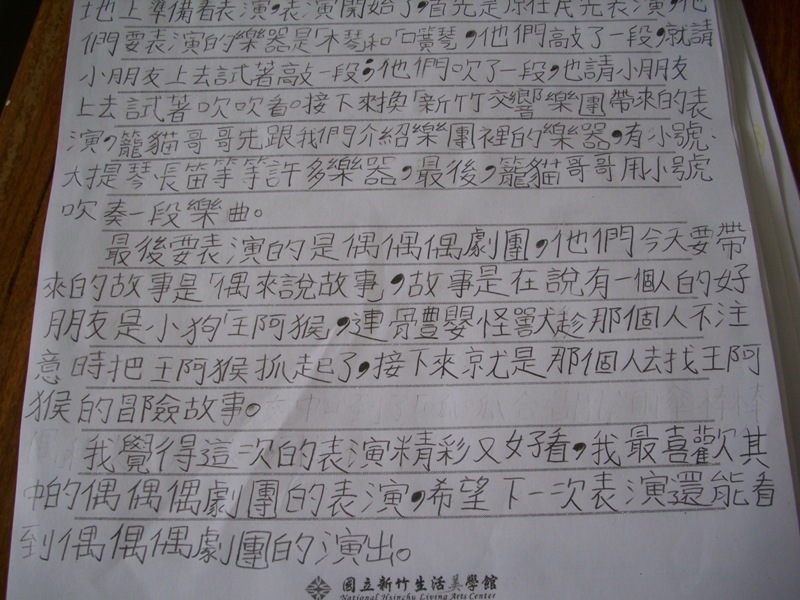 地上準備看表演,表演開始了,首先是原住民先表演,他
們要表演的樂器是「木琴和「口簧琴,他們敲了一段,就請
小朋友上去試著敲一段;他們吹了一段,也請小朋友
上去試著吹吹看。接下來換「新竹交響樂團帶來的表
演,籠貓哥哥先跟我們介紹樂團裡的樂器,有小號、
大提琴長笛等等許多樂器,最後,籠貓哥哥用小號
吹奏一段樂曲。
最後要表演的是偶偶偶劇團,他們今天要帶
來的故事是「偶來說故事」,故事是在說有一個人的好
朋友是小狗「王阿猴,連骨豊嬰怪獸趁那個人不注
意時把王阿猴抓起了,接下來就是那個人去找王阿
猴的冒險故事。
我覺得這次的表演精彩又好看,我最喜歡其
中的偶偶偶劇團的表演,希望下一次表演還能看
到偶偶偶劇團的演出。
國立新竹生活美學館
National Hsinchu Living Arts Center